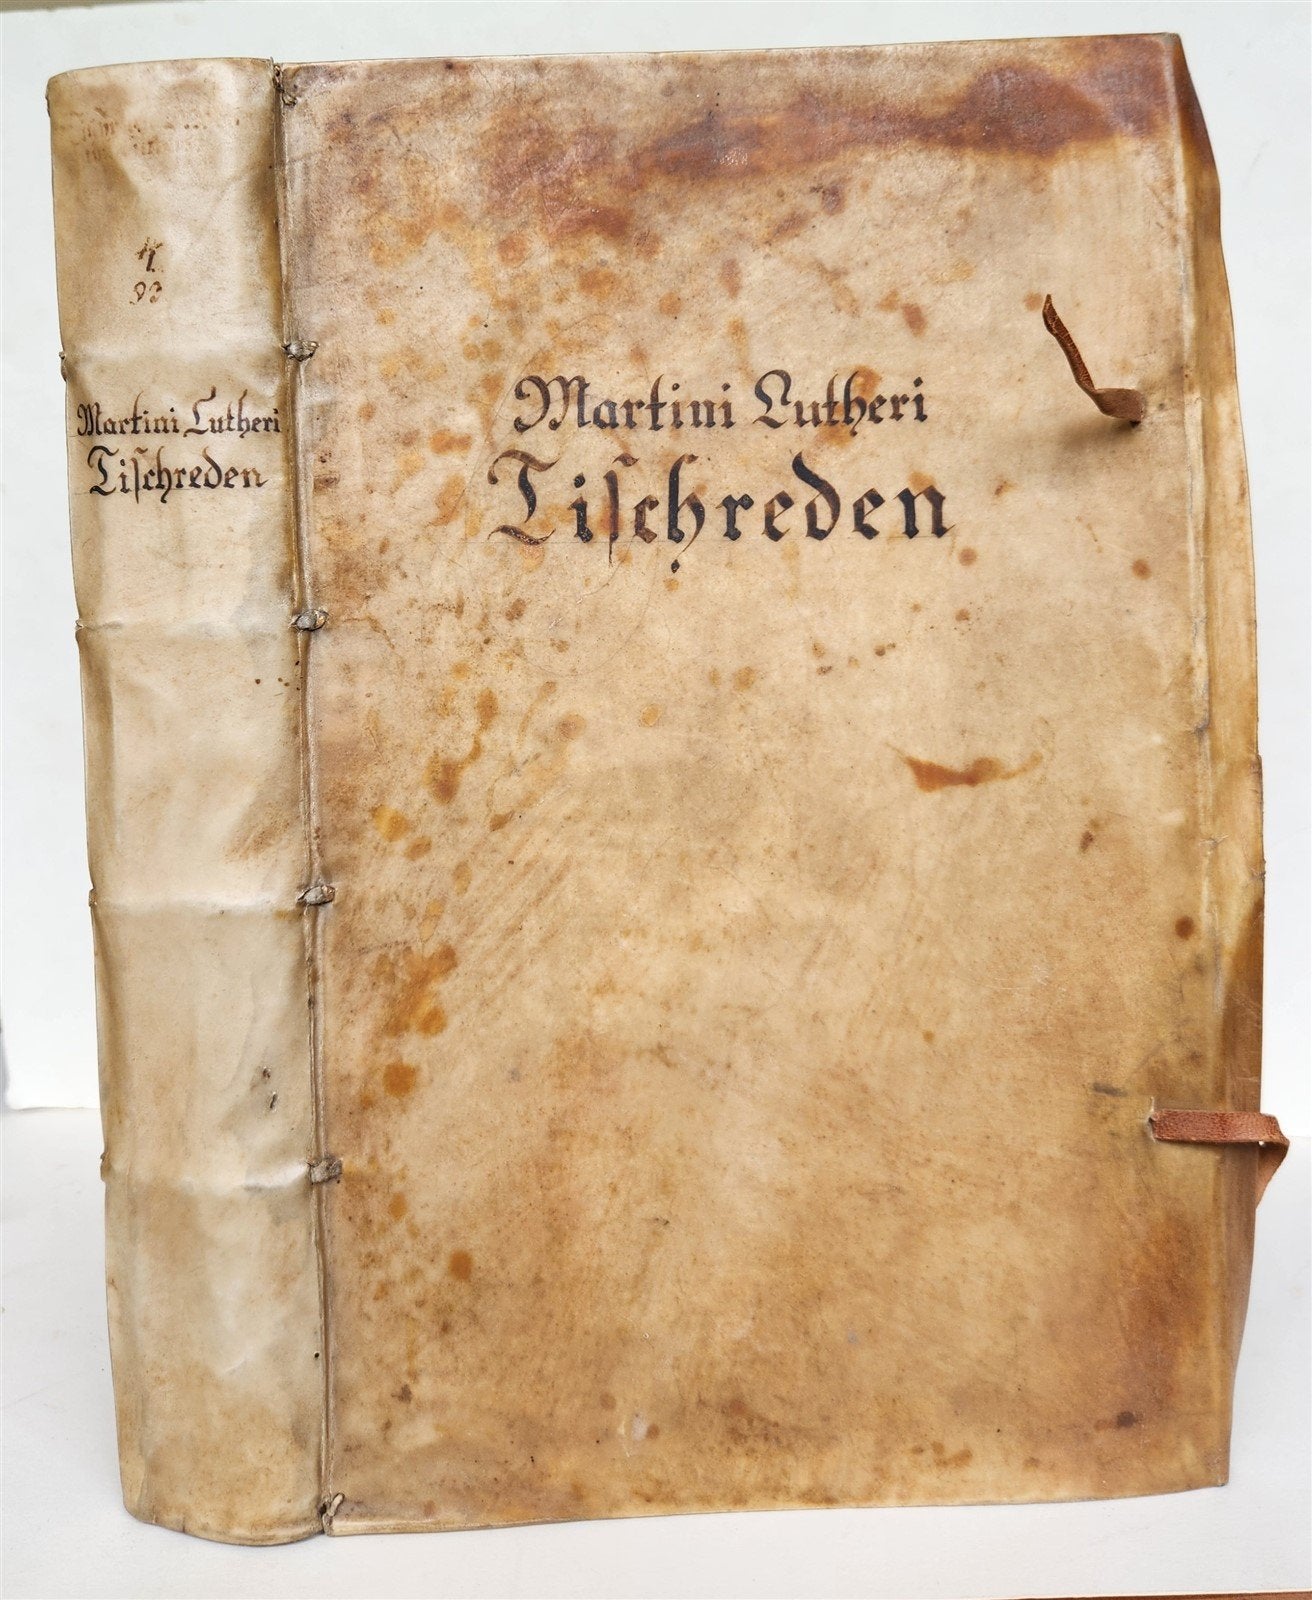 4
93
Martini Lutheri
Tiſchreden
Martini Lutheri
Tiſchreden